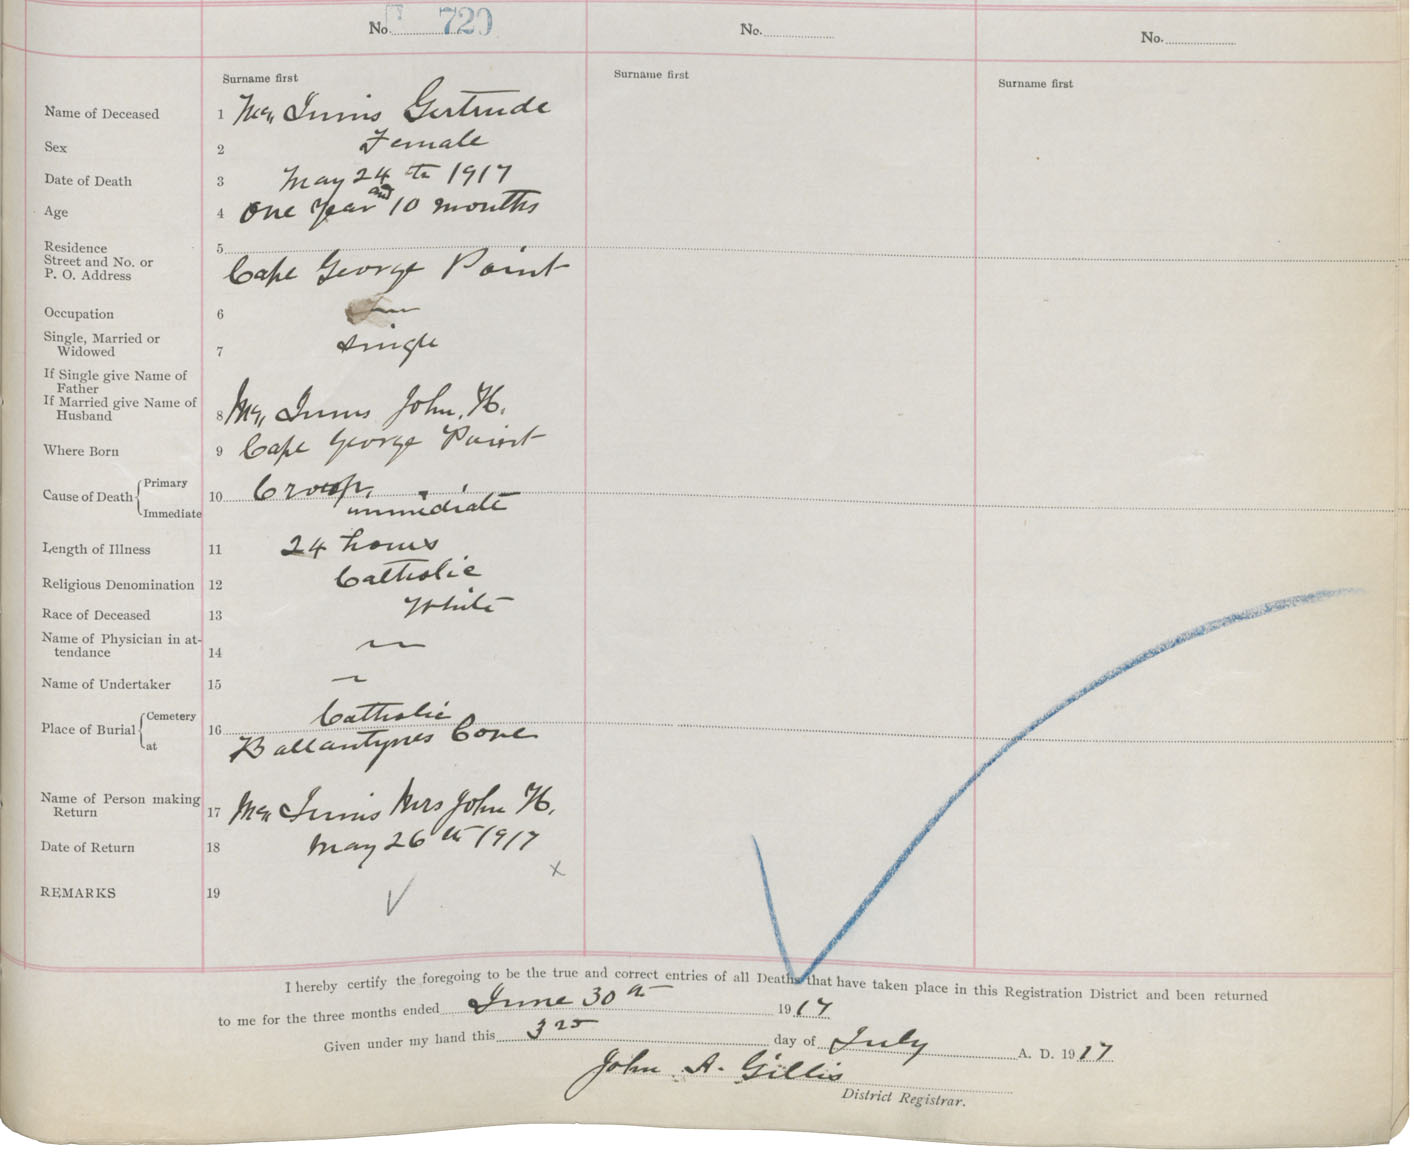 No. 720
No.
No.
Surname first
Surname first
Surname first
Name of Deceased 1 Mc Innis Gertrude
Sex 2 Female
Date of Death 3 May 24th 1917
Age 4 One Year and 10 months
Residence
Street and No. or
P. O. Address
5 Cape George Point
Occupation 6
Single, Married or
Widowed
7 Single
If Single give Name of
Father
If Married give Name of
Husband
8 Mc Innis John, H.
Where Born 9 Cape George Point
Cause of Death { Primary
Immediate
10 Croup,
immidiate
Length of Illness 11 24 hours
Religious Denomination 12 Catholic
Race of Deceased 13 White
Name of Physician in at-
tendance
14
Name of Undertaker 15
Place of Burial { Cemetery
at
16 Catholic
Ballantynes Cove
Name of Person making
Return
17 Mc Innis Mrs John H.
Date of Return 18 May 26th 1917
x
REMARKS 19
I hereby certify the foregoing to be the true and correct entries of all Deaths that have taken place in this Registration District and been returned
to me for the three months ended June 30th 1917
Given under my hand this 3rd day of July A. D. 1917
John A. Gillis
District Registrar.